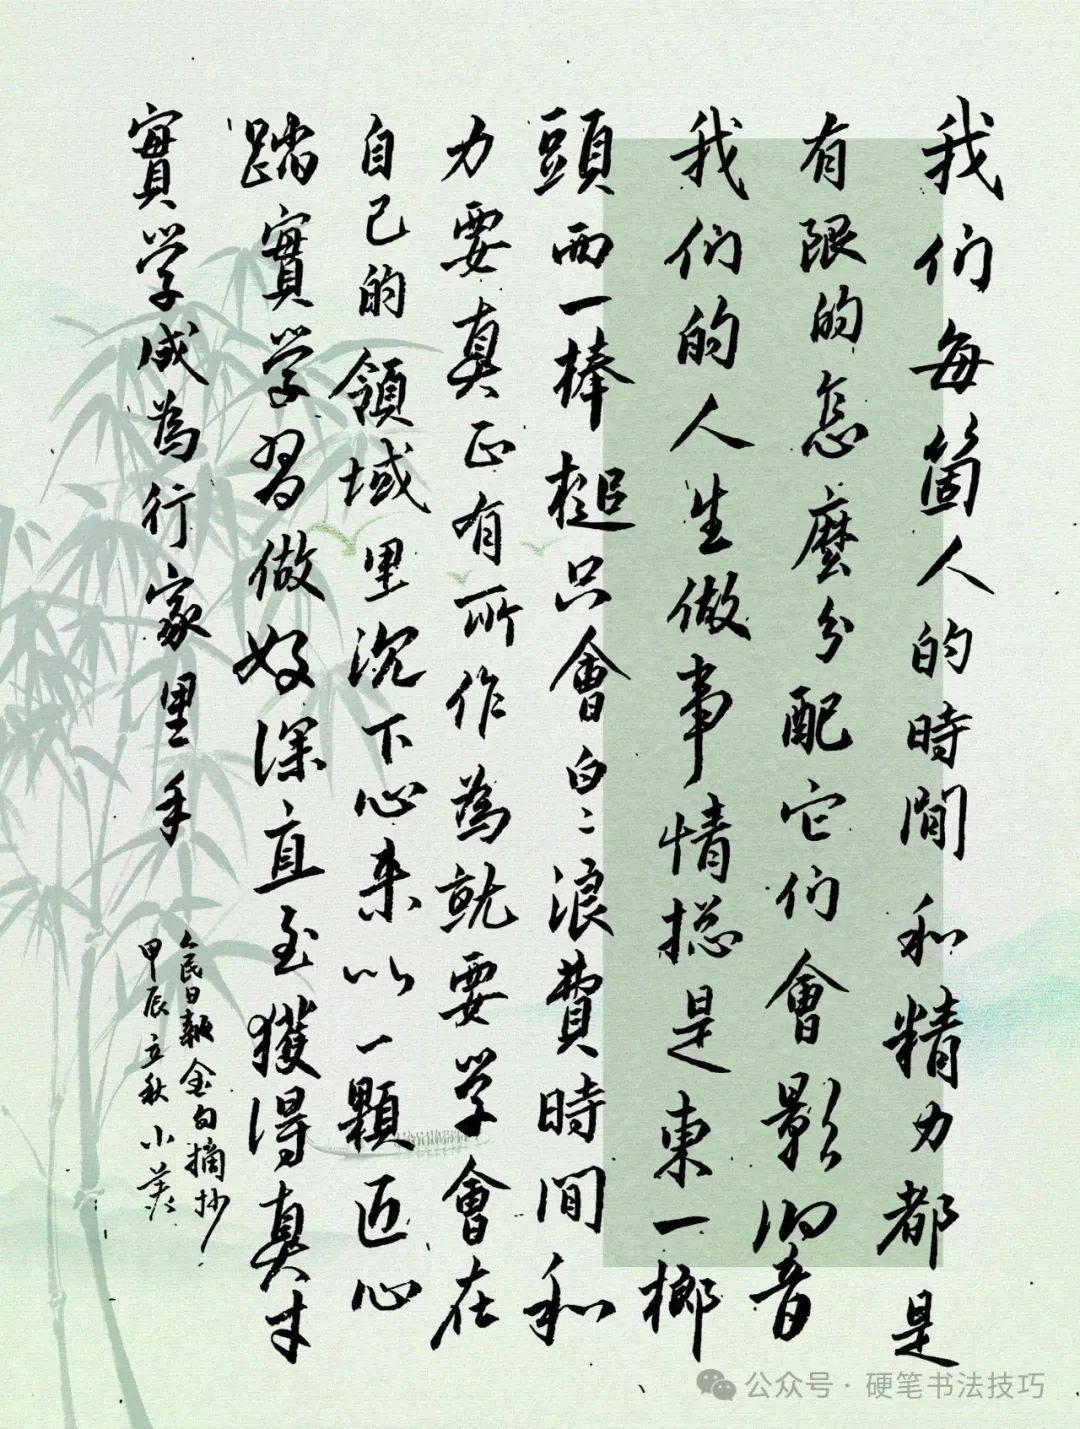 我们每箇人的時間和精力都是
有限的怎麼分配它们會影响音
我们的人生做事情捴是東一榔
頭西一棒槌只會白〻浪費時間和
力要真正有所作為就要学會在
自己的領域里沉下心来以一顆匠心
踏實学習做好深直至獲得真才
實学成為行家里手
人民日報金句摘抄
甲辰立秋小羙
公众号·硬笔书法技巧